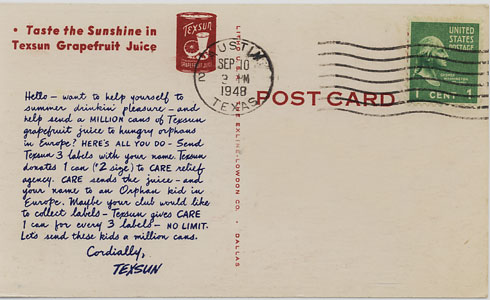 • Taste the Sunshine in
Texsun Grapefruit Juice
TEXSUN
GRAPEFRUIT JUICE
AUSTIN
SEP 10
3 PM
1948
2
TEXAS
UNITED
STATES
POSTAGE
GEORGE WASHINGTON
1 CENT 1
POST CARD
Hello — want to help yourself to
summer drinkin' pleasure — and
help send a MILLION cans of Texsun
grapefruit juice to hungry orphans
in Europe? HERE'S ALL YOU DO — Send
Texsun 3 labels with your name. Texsun
donates 1 can (#2 size) to CARE relief
agency. CARE sends the juice — and
your name to an Orphan kid in
Europe. Maybe your club would like
to collect labels — Texsun gives CARE
1 can for every 3 labels — NO LIMIT.
Let's send these kids a million cans.
Cordially,
TEXSUN
EXLINE-LOWDON CO. - DALLAS